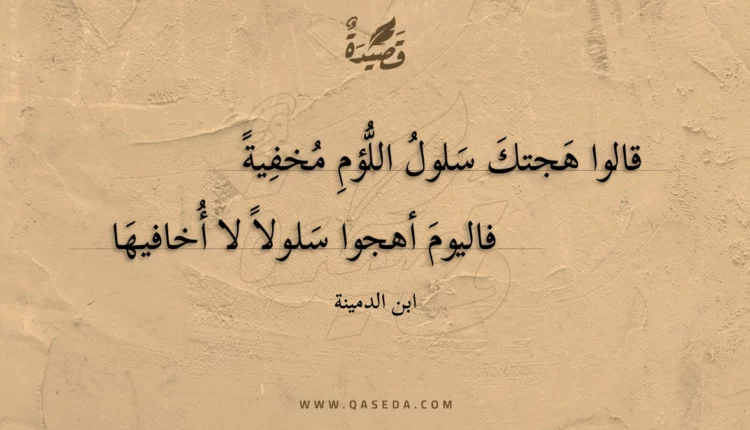 قَصِيْدَةٌ
قالوا هَجتكَ سَلولُ اللُّؤمِ مُخفِيةً
فاليومَ أهجوا سَلولاً لا أُخافيهَا
ابن الدمينة
WWW.QASEDA.COM